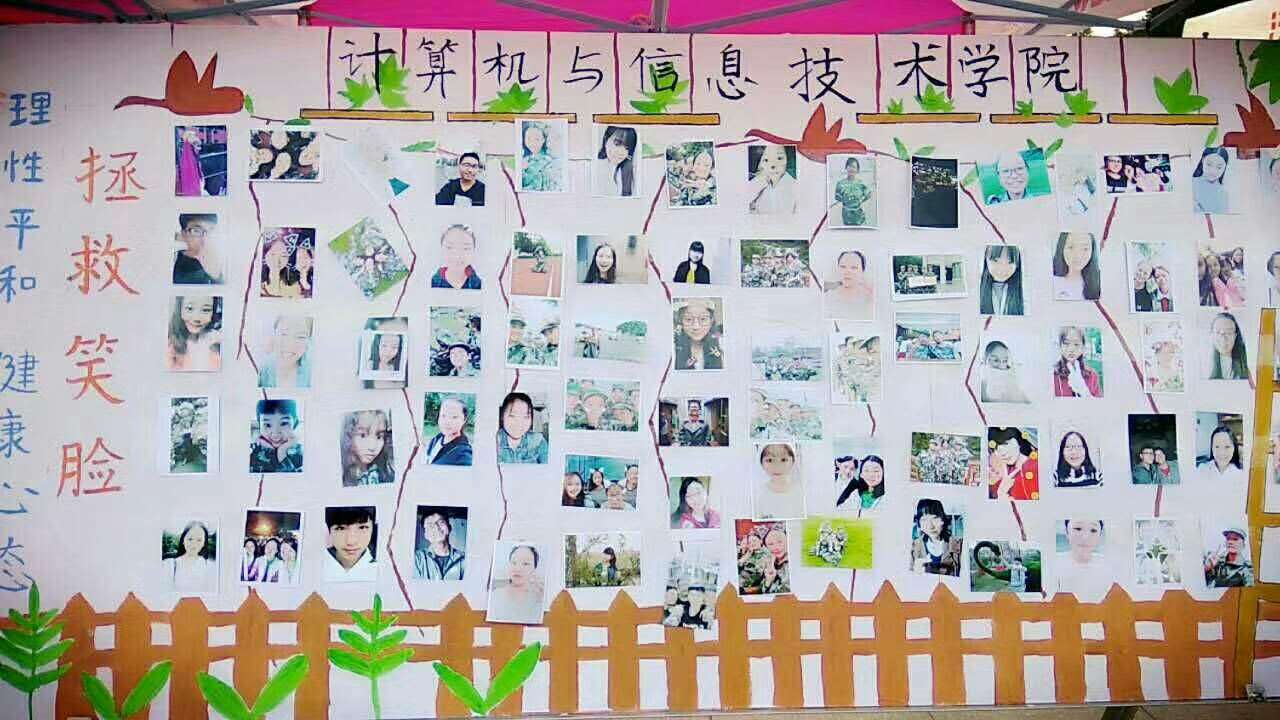 计算机与信息技术学院
理性平和 健康心态
拯救笑脸